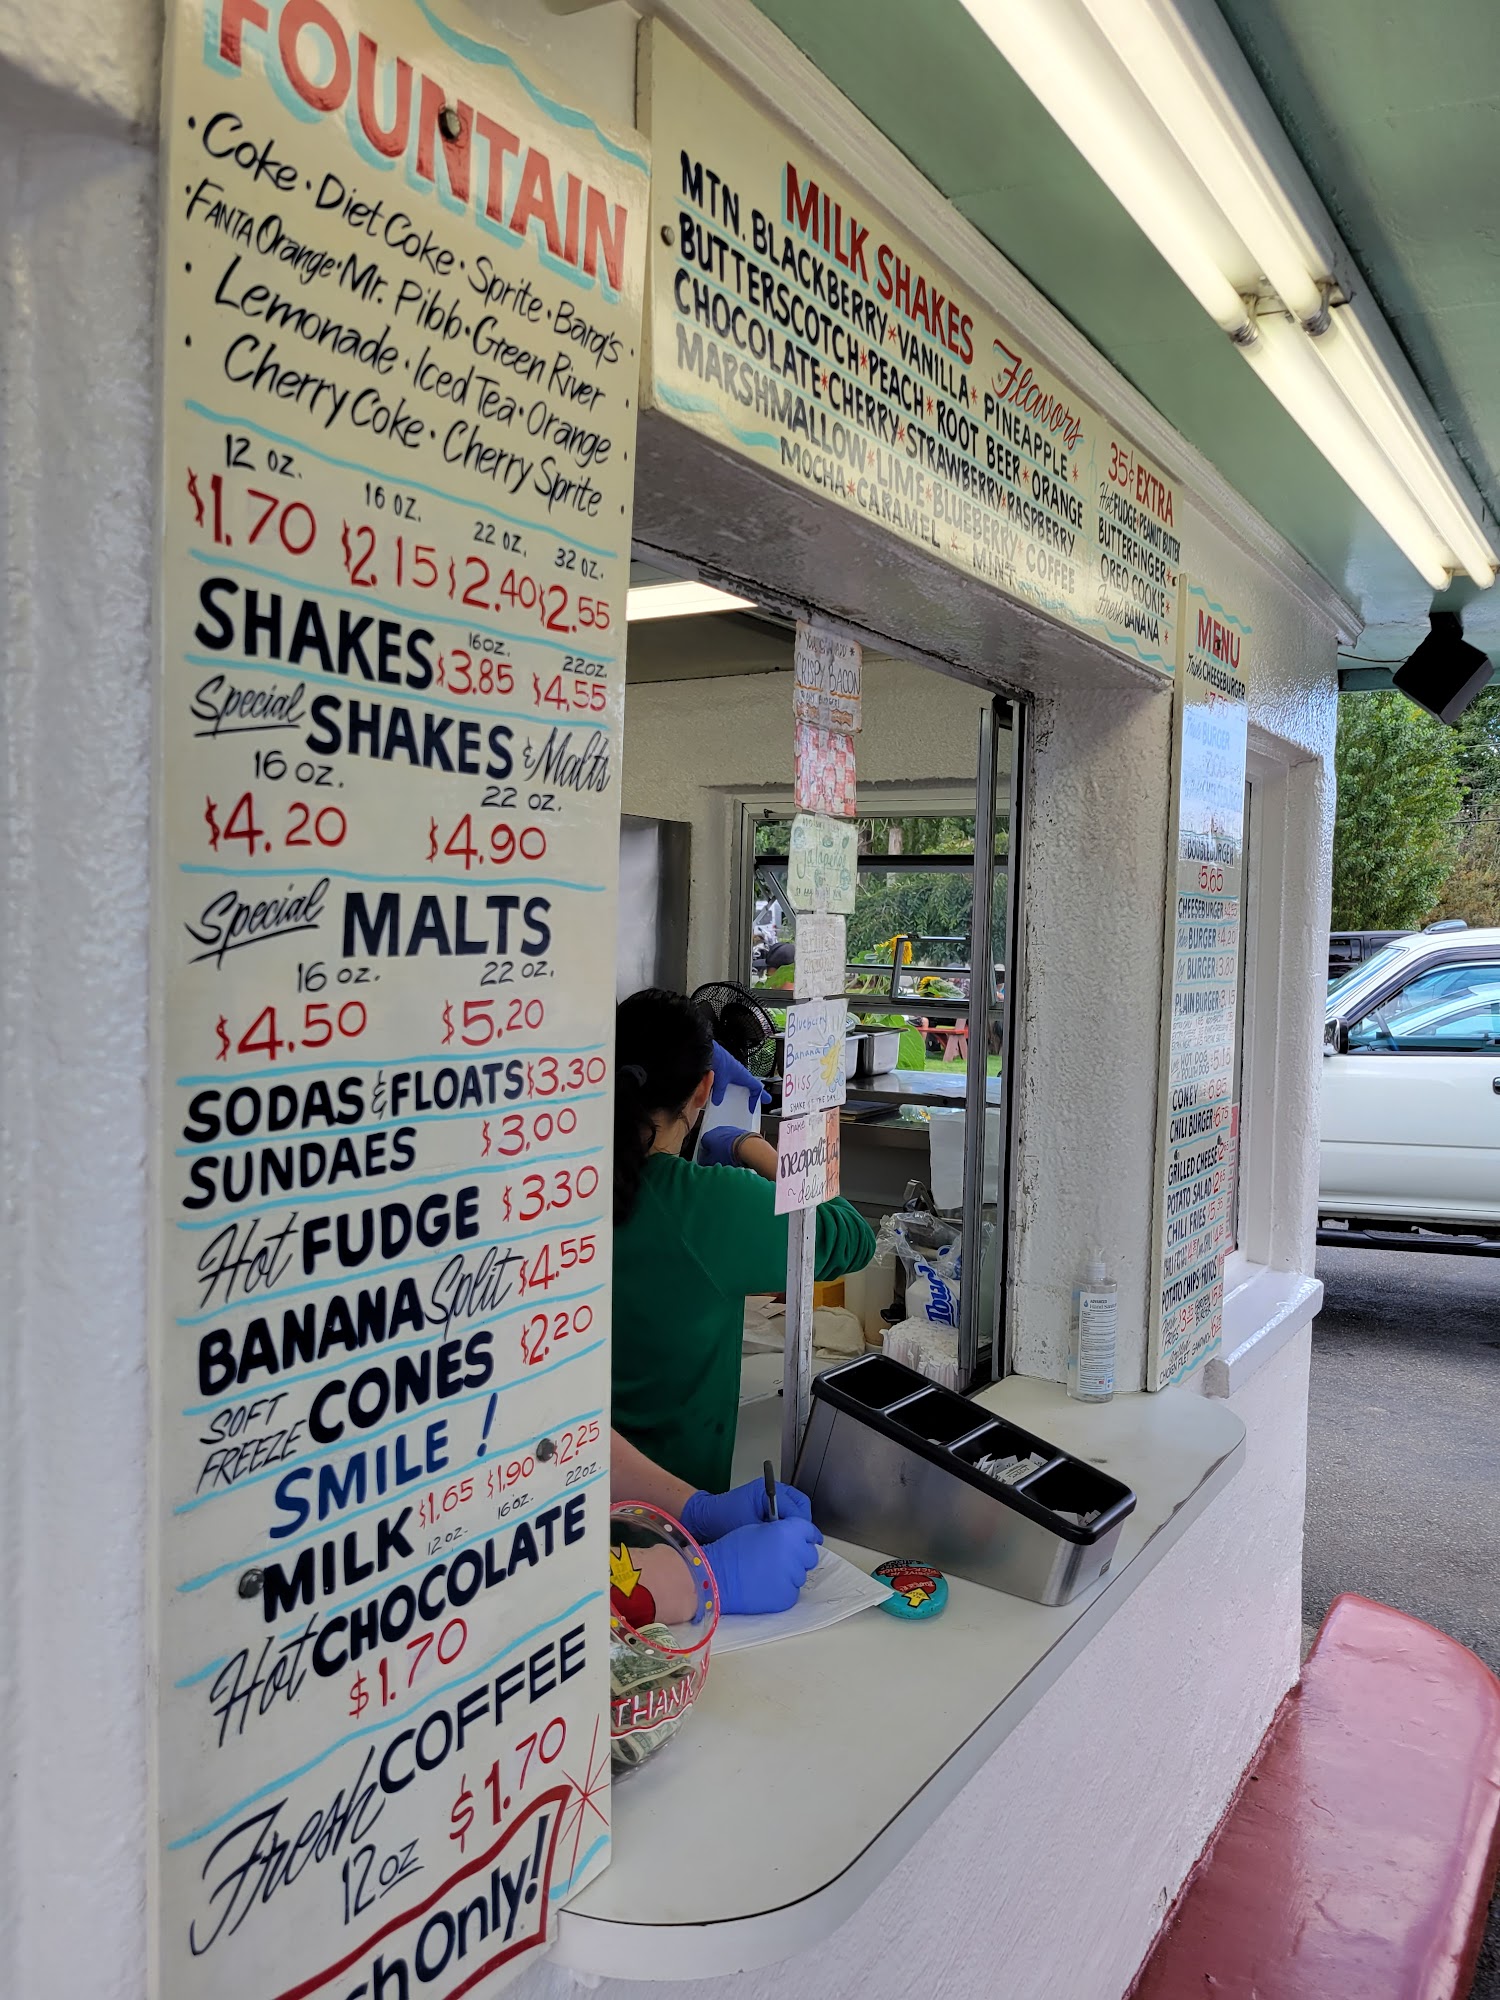 FOUNTAIN
· Coke · Diet Coke · Sprite · Barq's ·
· FANTA Orange · Mr. Pibb · Green River
· Lemonade · Iced Tea · Orange ·
· Cherry Coke · Cherry Sprite ·
12 OZ. 16 OZ. 22 OZ. 32 OZ.
$1.70 $2.15 $2.40 $2.55
SHAKES 16 OZ. $3.85 22 OZ. $4.55
Special SHAKES & Malts
16 OZ. 22 OZ.
$4.20 $4.90
Special MALTS
16 OZ. 22 OZ.
$4.50 $5.20
SODAS & FLOATS $3.30
SUNDAES $3.00
Hot FUDGE $3.30
BANANA Split $4.55
SOFT FREEZE CONES $2.20
SMILE!
MILK $1.65 $1.90 $2.25
12 OZ. 16 OZ. 22 OZ.
Hot CHOCOLATE
$1.70
Fresh COFFEE
12 OZ $1.70
Only!
MILK SHAKES Flavors
MTN. BLACKBERRY * VANILLA * PINEAPPLE *
BUTTERSCOTCH * PEACH * ROOT BEER * ORANGE
CHOCOLATE * CHERRY * STRAWBERRY * RASPBERRY
MARSHMALLOW * LIME * BLUEBERRY * COFFEE
MOCHA * CARAMEL * MINT
35¢ EXTRA
Hot FUDGE * PEANUT BUTTER
BUTTERFINGER *
OREO COOKIE *
Fresh BANANA *
CRISPY BACON
jalapeños
Blueberry
Banana
Bliss
SHAKE OF THE DAY
neopolitan
MENU
CHEESEBURGER
BURGER
DOUBLEBURGER
$5.65
CHEESEBURGER
BURGER $4.20
BURGER 3.80
PLAIN BURGER 3.15
HOT DOG $5.15
CONEY 6.95
CHILI BURGER 6.75
GRILLED CHEESE
POTATO SALAD
CHILI FRIES
POTATO CHIPS
CHICKEN FILET SANDWICH
THANK